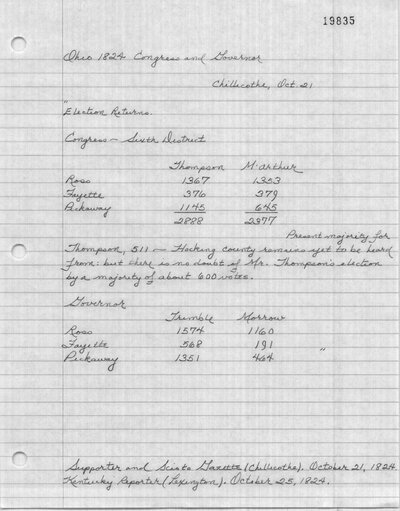 19835
Ohio 1824 Congress and Governor
Chillicothe, Oct. 21
"
Election Returns.
Congress — Sixth District
Thompson M'Arthur
Ross 1367 1353
Fayette 376 379
Pickaway 1145 645
2888 2377
Present majority for
Thompson, 511 — Hocking county remains yet to be heard
from: but there is no doubt of Mr. Thompson's election
by a majority of about 600 votes.
Governor
Trimble Morrow
Ross 1574 1160
Fayette 568 191 "
Pickaway 1351 464
Supporter and Scioto Gazette (Chillicothe). October 21, 1824.
Kentucky Reporter (Lexington). October 25, 1824.